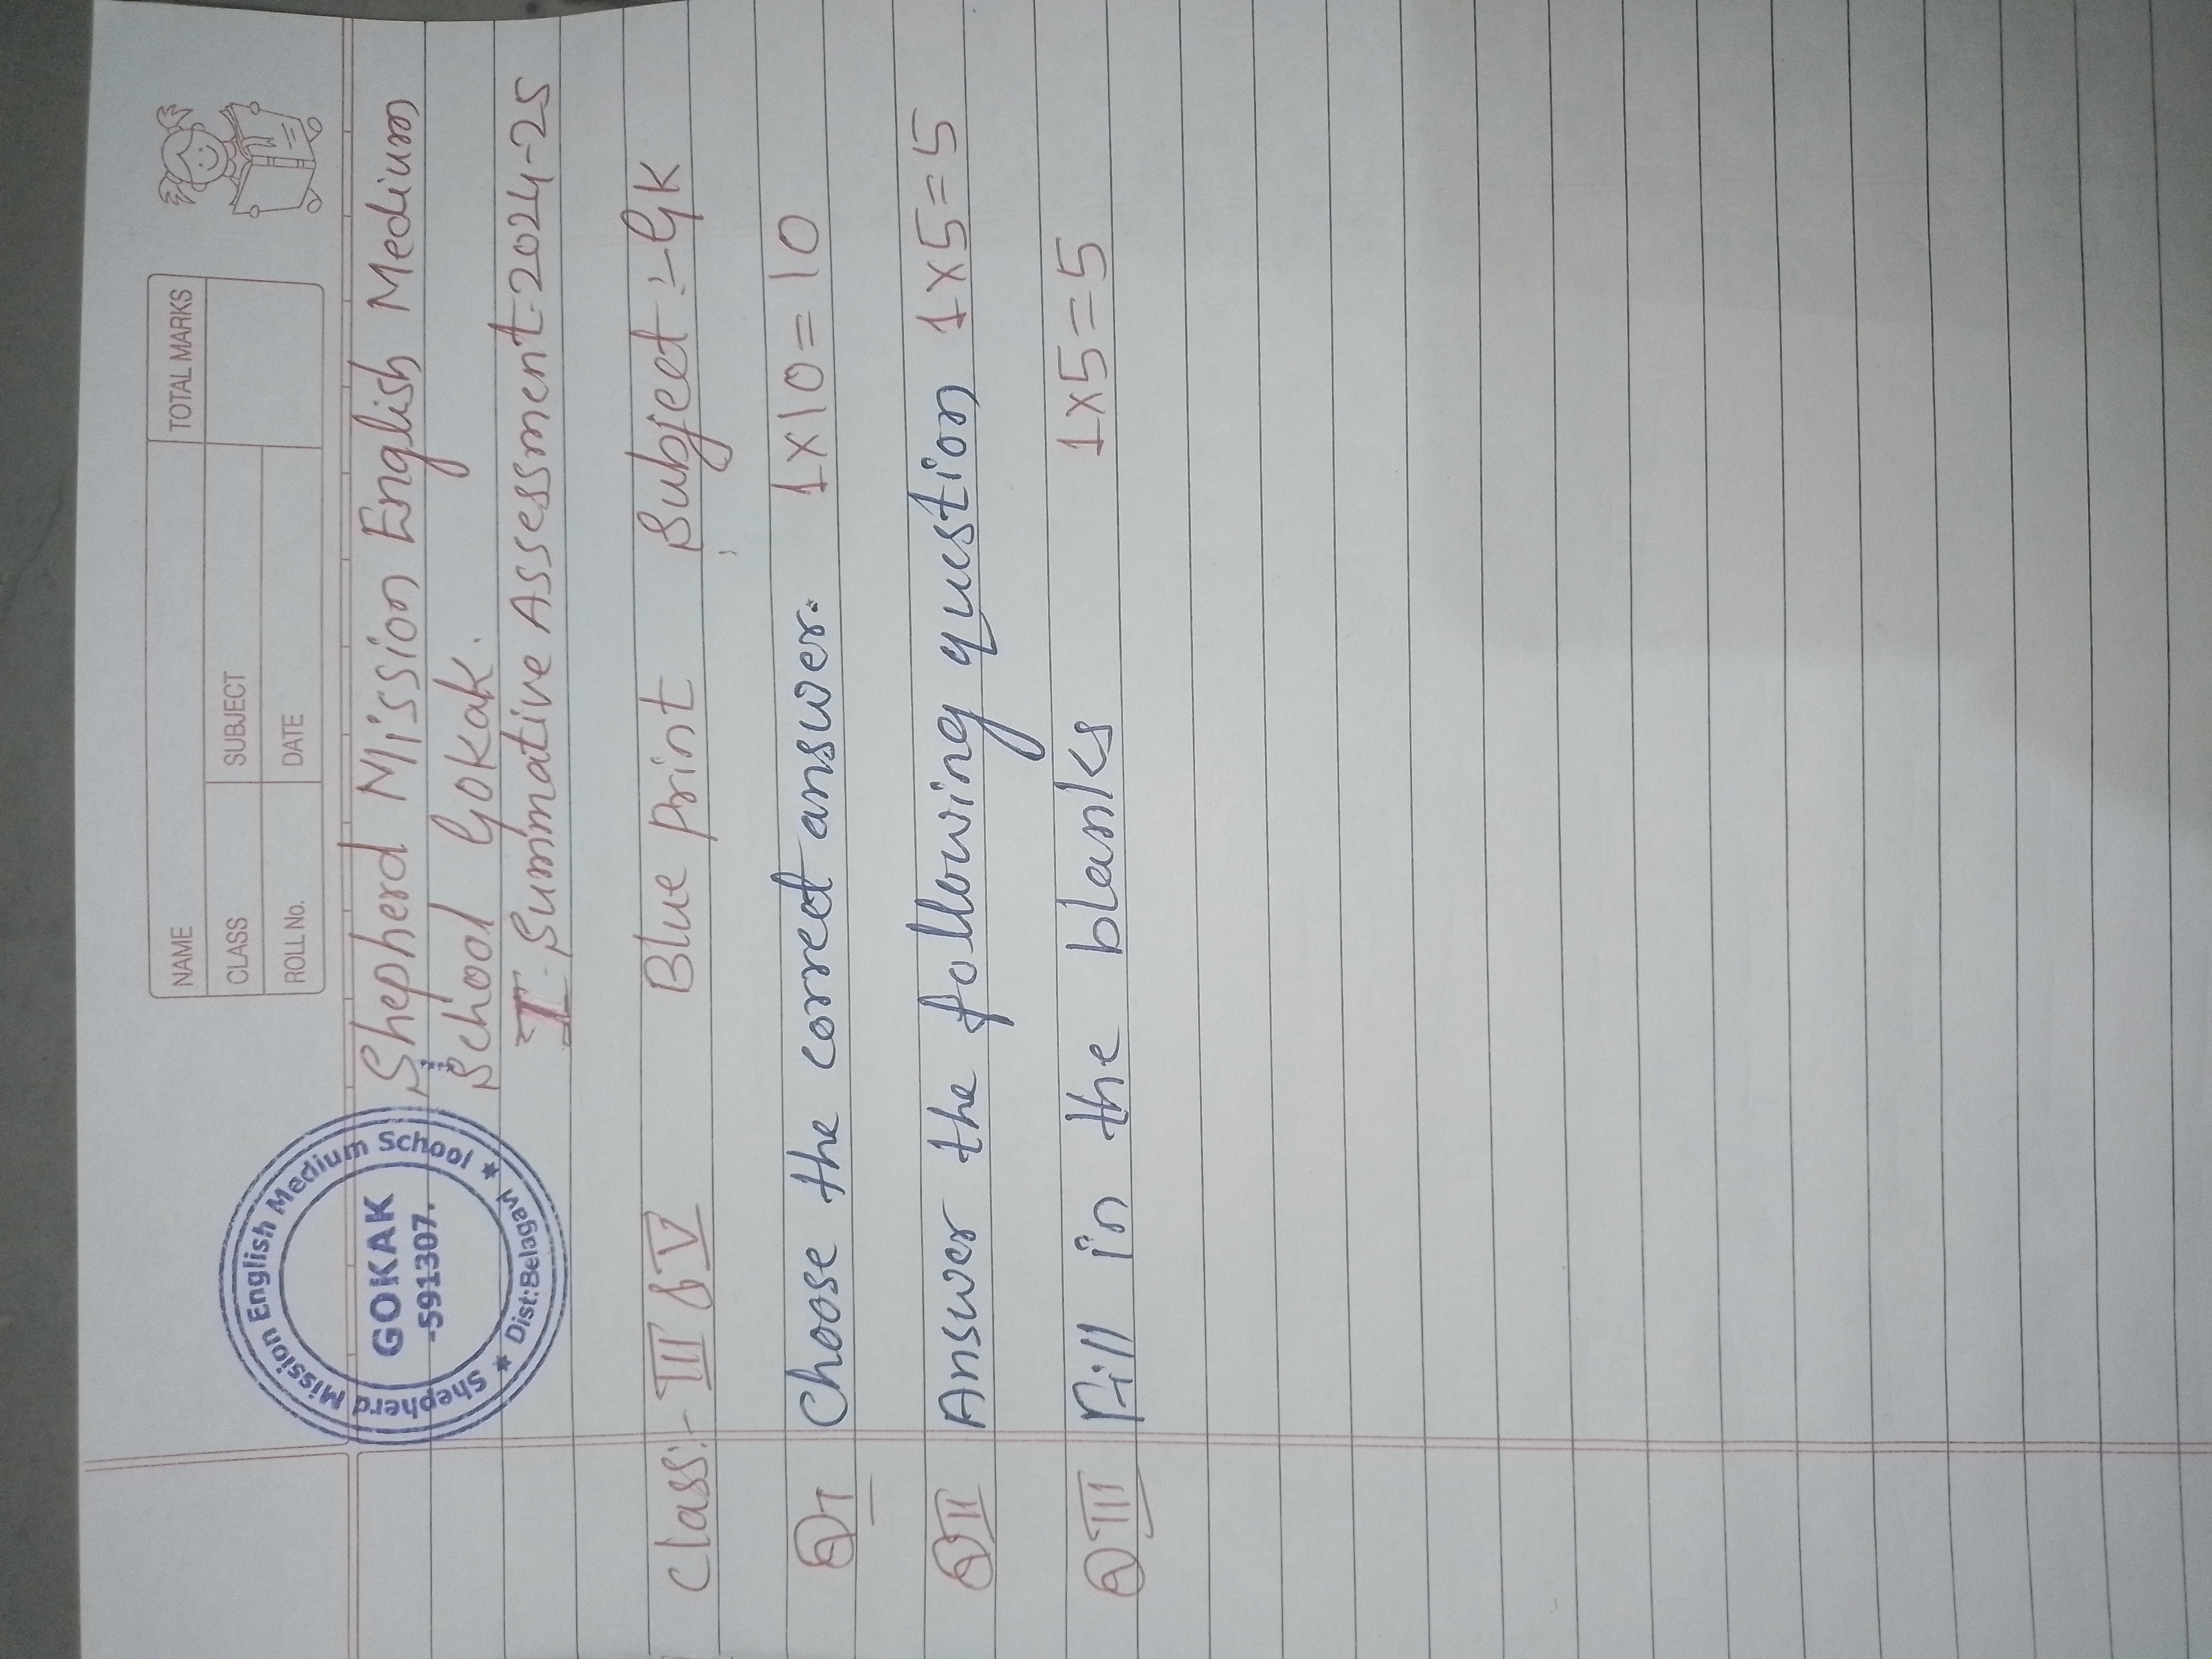 NAME
TOTAL MARKS
CLASS SUBJECT
ROLL No. DATE
Shepherd Mission English Medium School
GOKAK
-591307.
Dist:Belagavi
Shepherd Mission English Medium
School Gokak.
I - Summative Assessment-2024-25
Class:- III & V Blue Print Subject :- GK
Q I Choose the correct answer. 1x10=10
Q II Answer the following question 1x5=5
Q III Fill in the blanks 1x5=5